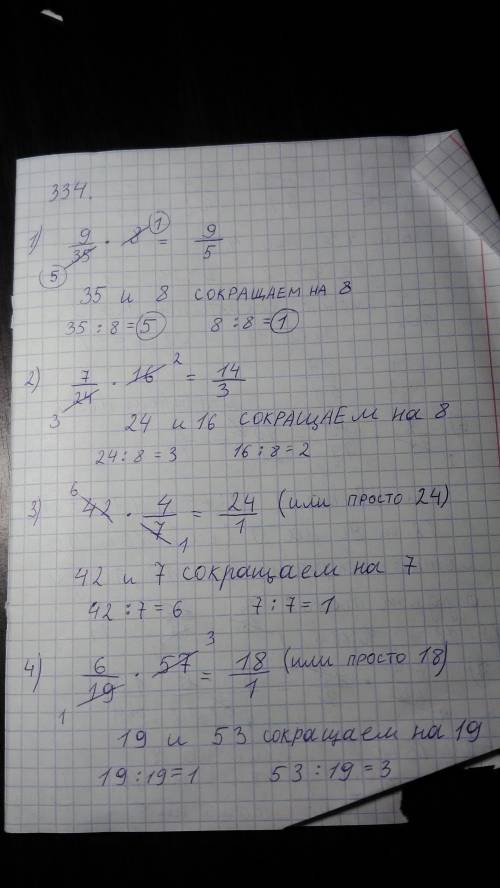 334.
1) 9/35 · 8 1 = 9/5
5
35 и 8 сокращаем на 8
35 : 8 = 5 8 : 8 = 1
2) 7/24 · 16 2 = 14/3
3
24 и 16 сокращаем на 8
24 : 8 = 3 16 : 8 = 2
3) 6 42 · 4/7 = 24/1 (или просто 24)
1
42 и 7 сокращаем на 7
42 : 7 = 6 7 : 7 = 1
4) 6/19 · 57 3 = 18/1 (или просто 18)
1
19 и 53 сокращаем на 19
19 : 19 = 1 53 : 19 = 3